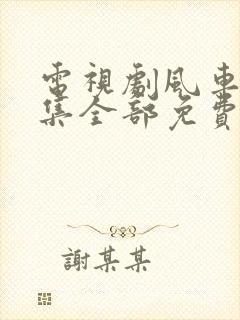 電視劇風車
集全部免費
謝某某